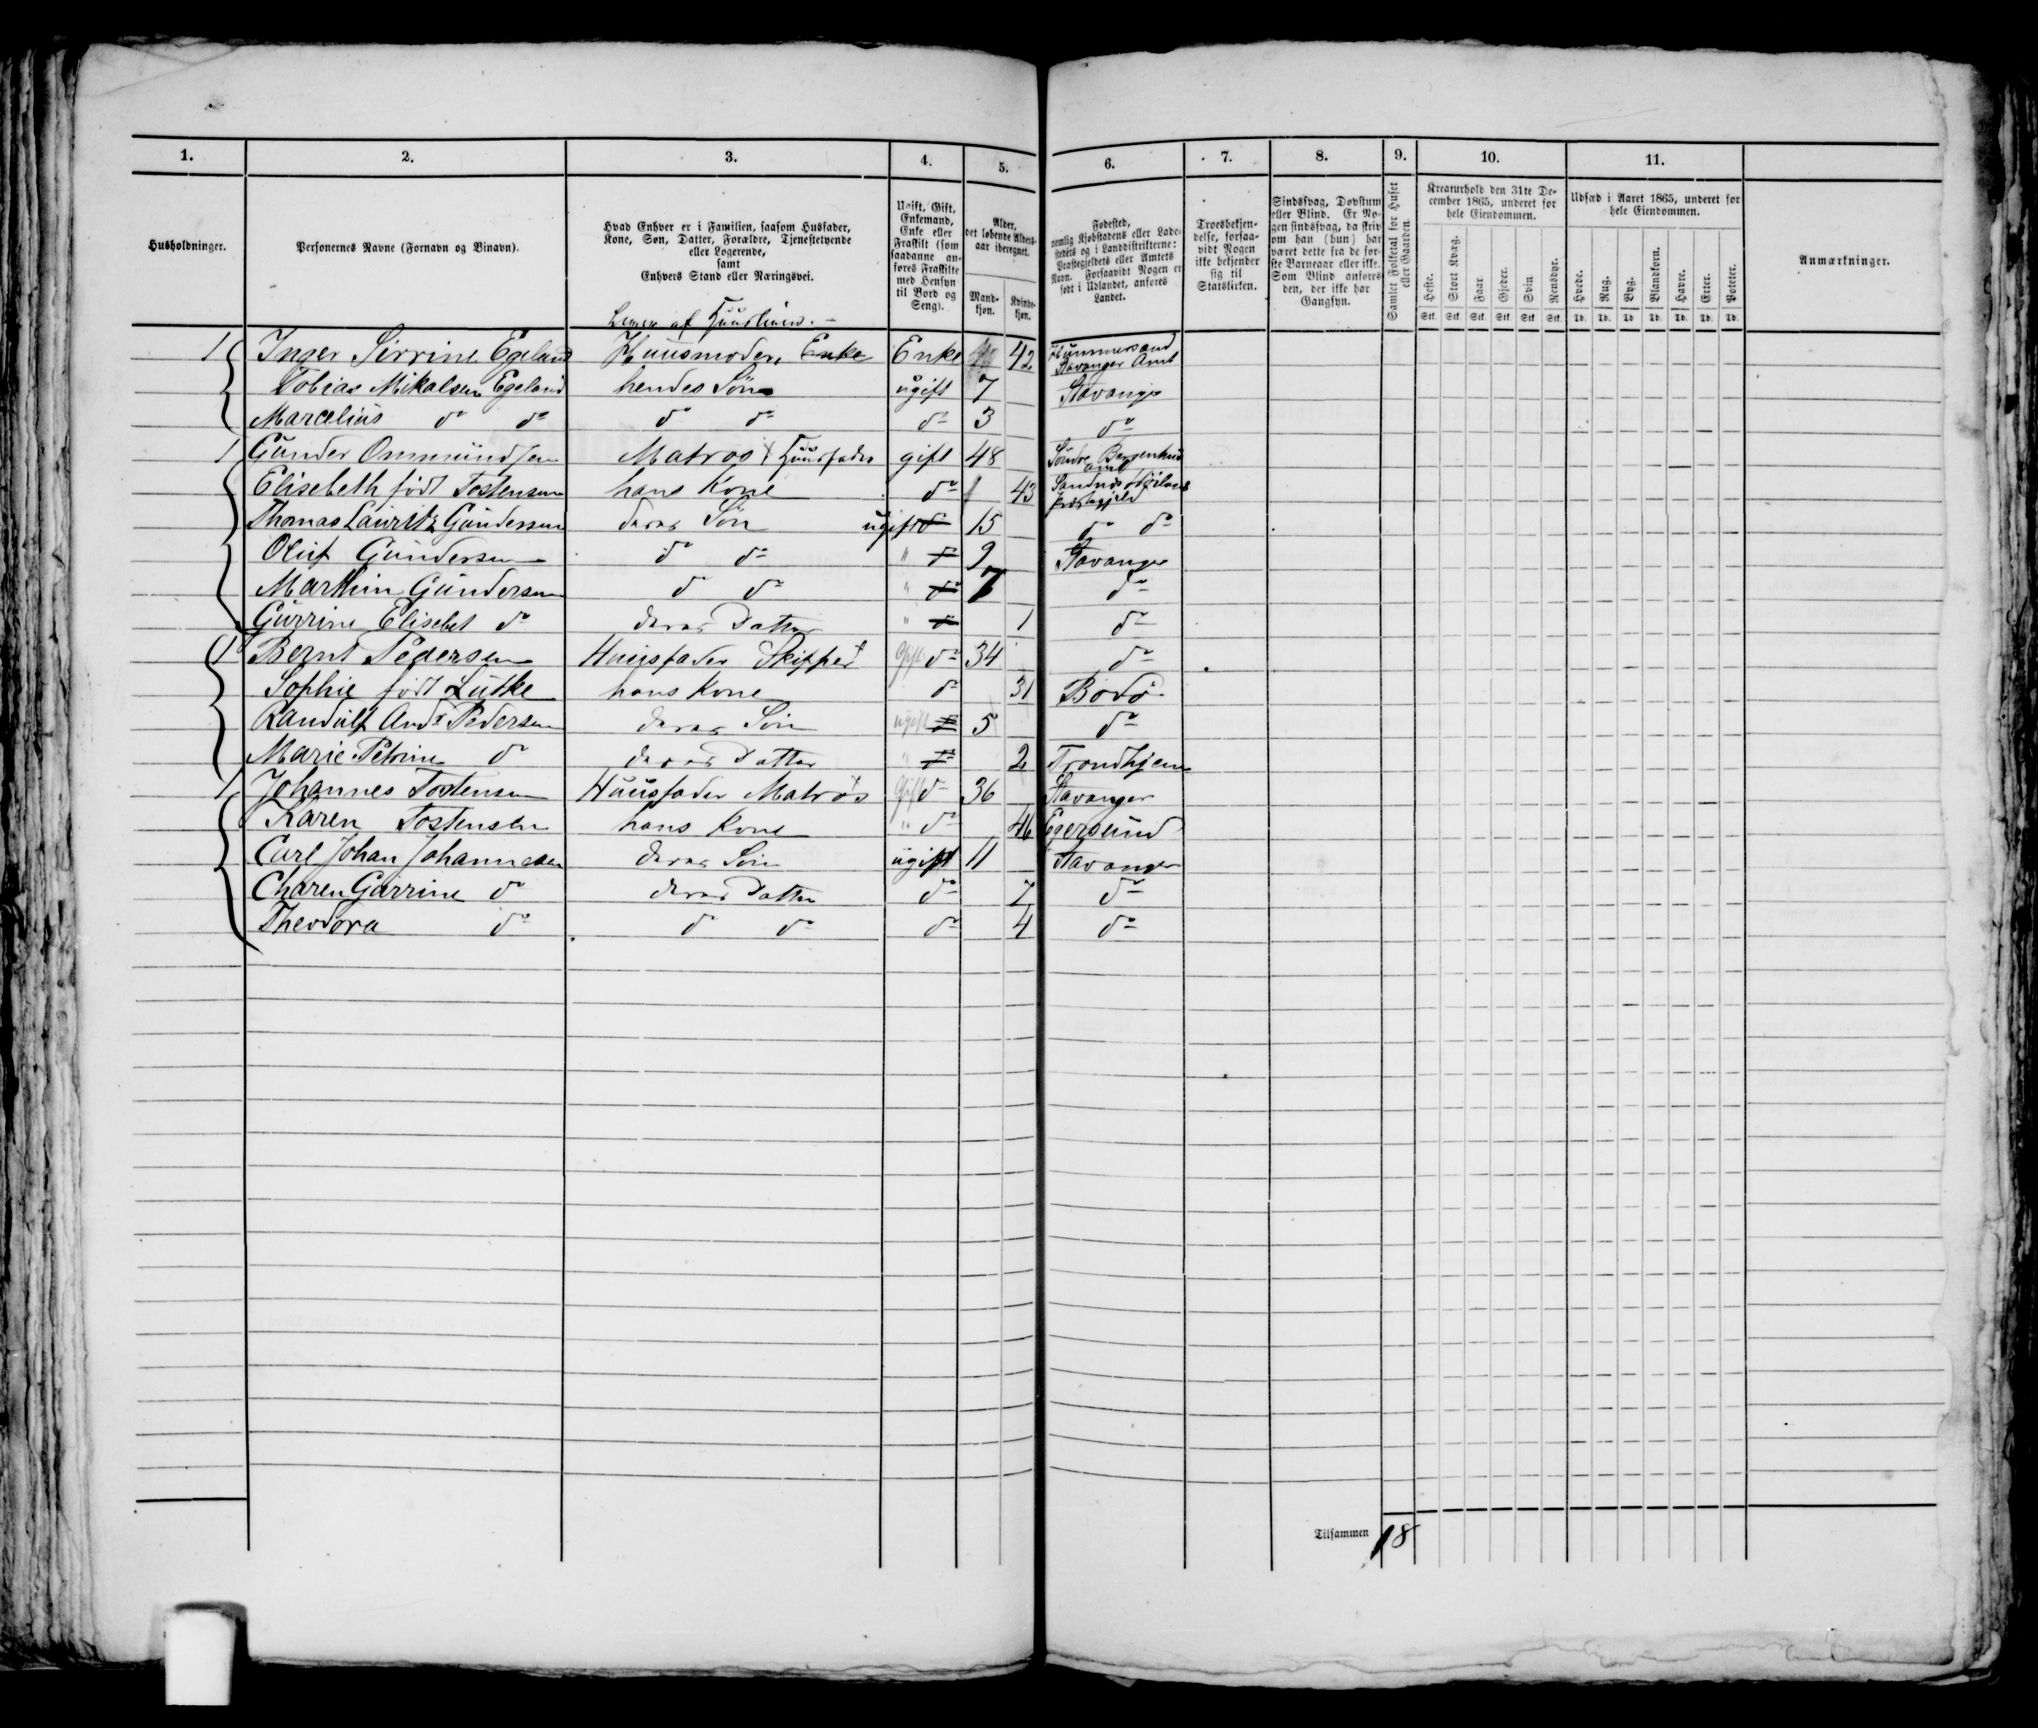 1. 2. 3. 4. 5. 6. 7. 8. 9. 10. 11.
Husholdninger.
Personernes Navne (Fornavn og Binavn).
Hvad Enhver er i Familien, saasom Husfader,
Kone, Søn, Datter, Forældre, Tjenestetyende
eller Logerende,
samt
Enhvers Stand eller Næringsvei.
Ugift, Gift,
Enkemand,
Enke eller
Fraskilt (som
saadanne an-
føres Fraskilte
med Hensyn
til Bord og
Seng).
Alder,
det løbende Alders-
aar iberegnet.
Mand-
kjøn.
Kvinde-
kjøn.
Fødested,
nemlig Kjøbstadens eller Lade-
stedets og i Landdistrikterne:
Præstegjeldets eller Amtets
Navn. Forsaavidt Nogen er
født i Udlandet, anføres
Landet.
Troesbekjen-
delse, forsaa-
vidt Nogen
ikke bekjender
sig til
Statskirken.
Sindssvag, Døvstum
eller Blind. Er No-
gen sindssvag, da skriv
om han (hun) har
været dette fra de før-
ste Barneaar eller ikke.
Som Blind anføres
den, der ikke har
Gangsyn.
Samlet Folketal for Huset
eller Gaarden.
Kreaturhold den 31te De-
cember 1865, underet for
hele Eiendommen.
Heste. Stort Kvæg. Faar. Gjeder. Svin. Rensdyr.
Stk. Stk. Stk. Stk. Stk. Stk.
Udsæd i Aaret 1865, underet for
hele Eiendommen.
Hvede. Rug. Byg. Blandkorn. Havre. Erter. Poteter.
Td. Td. Td. Td. Td. Td. Td.
Anmærkninger.
1 Inger Serrine Egeland Huusmoder, Enke Enke 42 Hummersand Stavanger Amt
Tobias Mikalsen Egeland hendes Søn ugift 7 Stavanger
Marcelius do do do do do 3 do
1 Gunder Ommundsen Matros Huusfader gift 48 Søndre Bergenhus amt
Elisebeth født Tostensen hans Kone do 43
Thomas Lauritz Gundersen deres Søn ugift do 15 do do
Oluf Gundersen do do " do 9 Stavanger
Marthin Gundersen do do " do 7 do
Gurrine Elisebet do deres Datter " do 1 do
1 Bernt Pedersen Huusfader Skipper Gift do 34 do
Sophie født Lutke hans Kone do 31 Bodø
Randulf Ands Pedersen deres Søn ugift do 5 do
Marie Petrine do deres Datter " do 2 Trondhjem
1 Johannes Tostensen Huusfader Matros Gift do 36 Stavanger
Karen Tostensen hans Kone " do 46 Egersund
Carl Johan Johannesen deres Søn ugift 11 Stavanger
Charen Garrine do deres Datter do 7 do
Theodora do do do do 4 do
Tilsammen 18